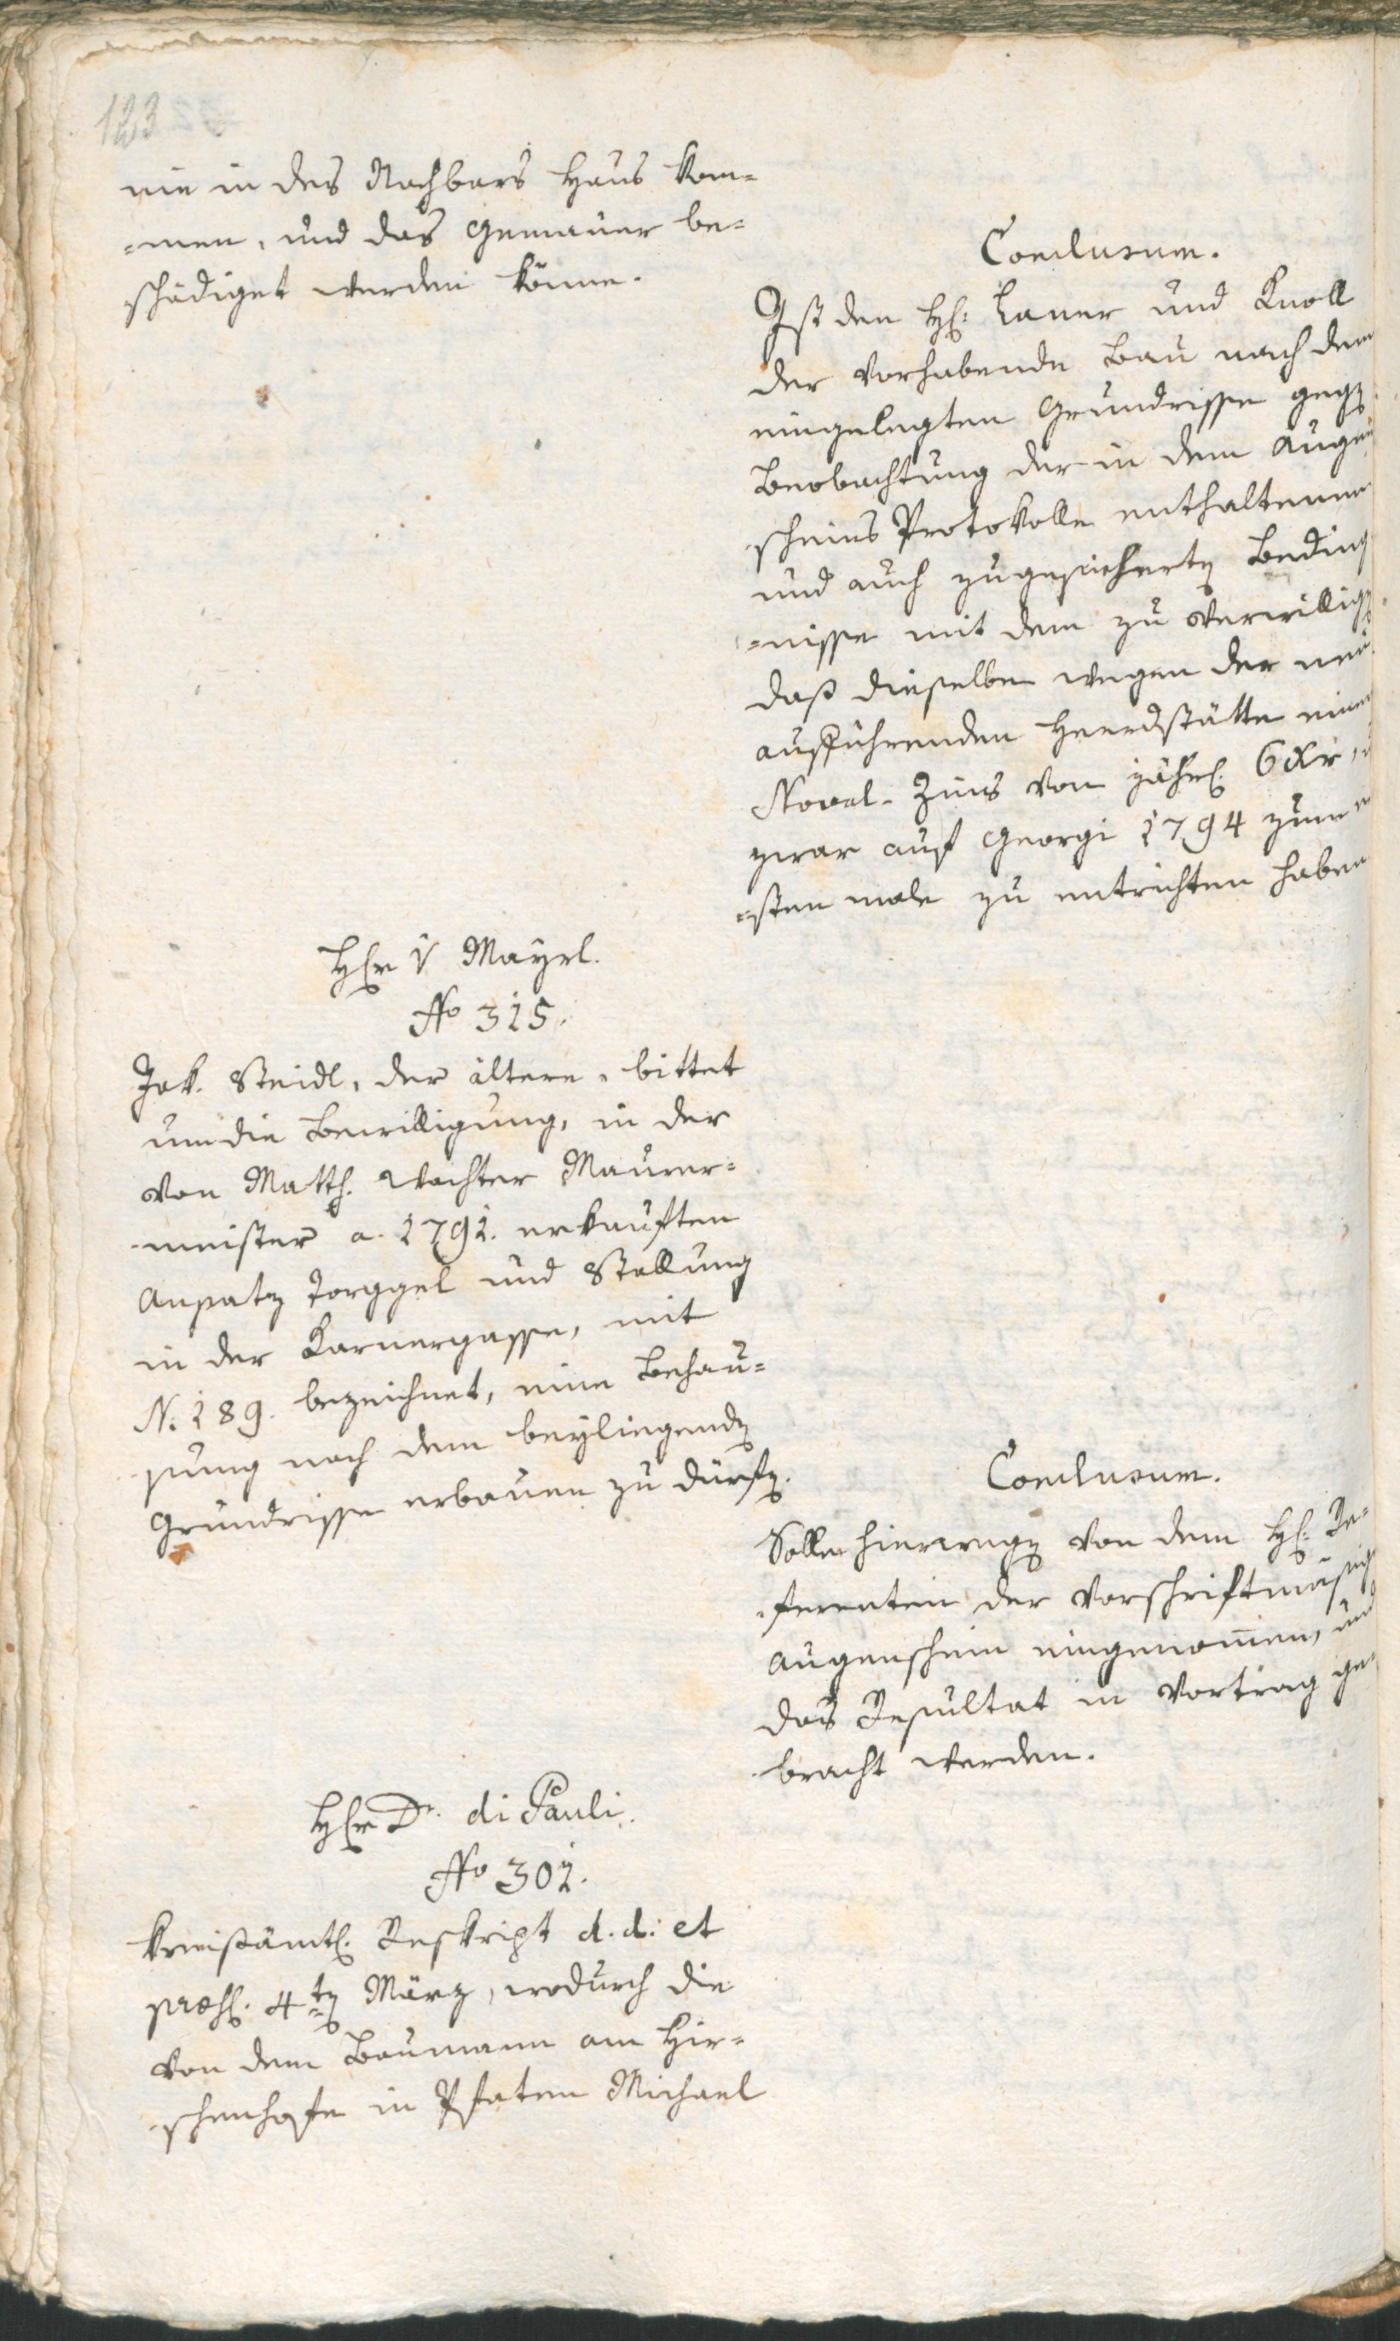 123
nie in des Nachbars Haus kom=
=men, und das Gemäuer be=
schädiget werden könne.
Conclusum.
Ist den H: Laner und Knoll
der vorhabende Bau nach dem
eingelegten Grundrisse gegen
Beobachtung der in dem Augen
scheins Protokolle enthaltenen
und auch zugesicherten Beding
=nisse mit dem zu verwilligen
daß dieselben wegen der neu
aufführenden Heerdstätte einen
Noval-Zins von jährl. 6 xr, u
zwar auf Georgi 1794 zum er
=sten male zu entrichten haben
Herr v Mayrl.
No 315.
Jak. Steidl, der ältere, bittet
um die Bewilligung, in der
von Matth. Wachter Maurer=
meister a. 1791. erkauften
Ansatz Torggel und Stallung
in der Karnergasse, mit
N. 189. bezeichnet, eine Behau=
sung nach dem beyliegenden
Grundrisse erbauen zu dürfen.
Conclusum.
Solle hierwegen von dem H: Re=
ferenten der vorschriftmäsige
Augenschein eingenommen, und
das Resultat in Vortrag ge=
bracht werden.
Herr Dr. di Pauli.
No 302.
Kreisämtl. Reskript d. d: et
præs. 4ten März, wodurch die
von dem Baumann am Hir=
schenhofe in Pfaten Michael